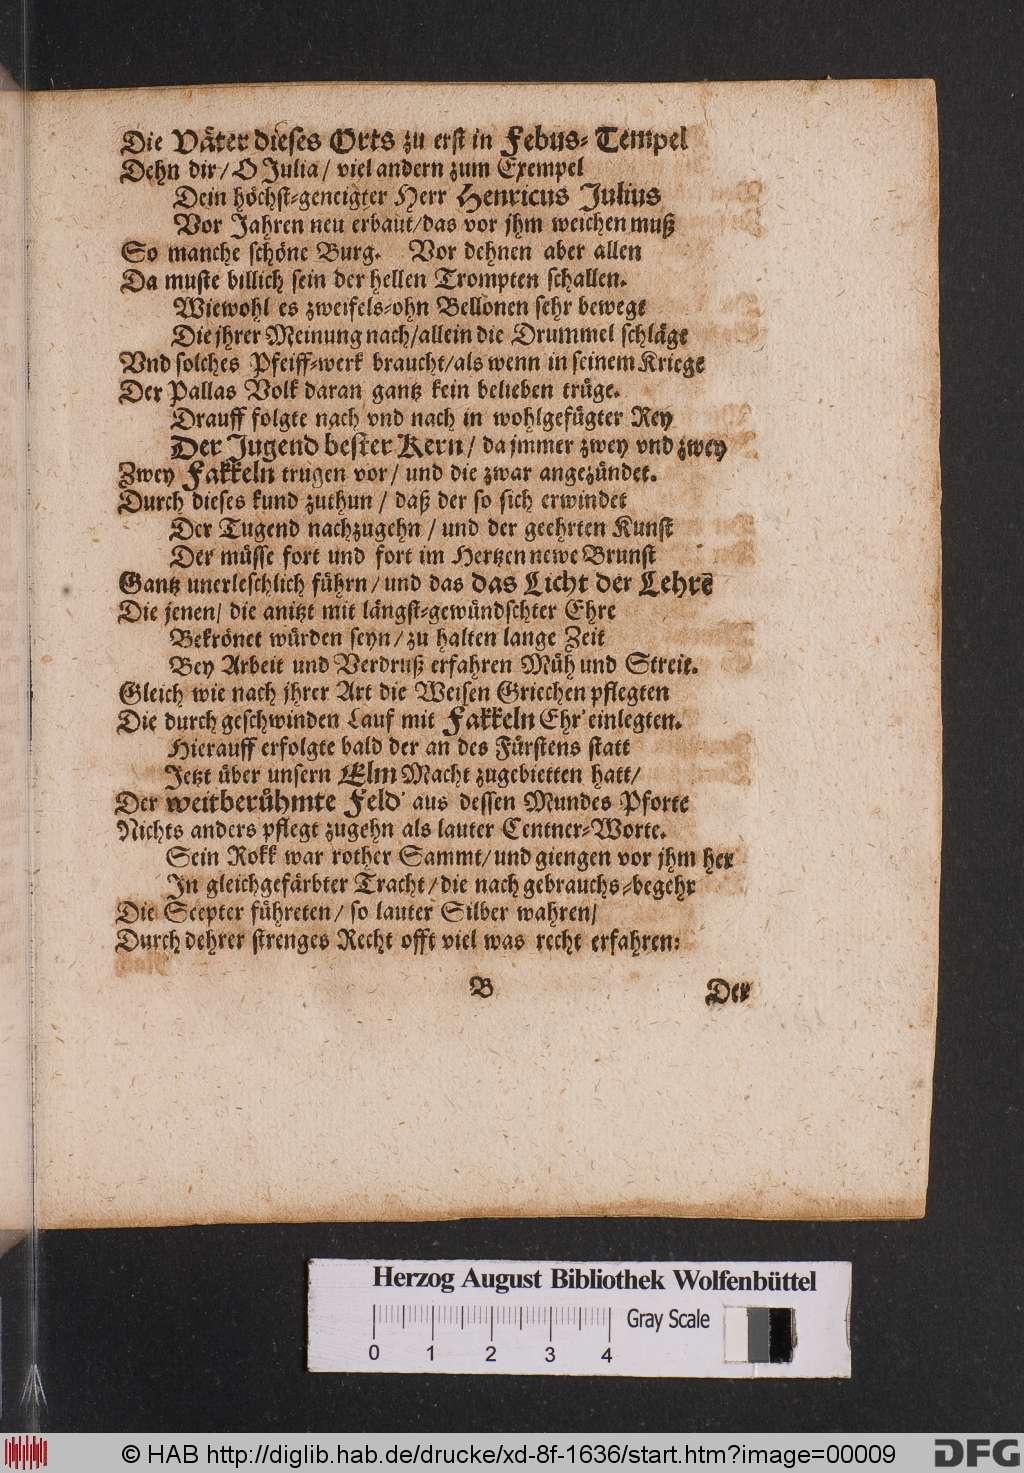 Die Väter dieses Orts zu erst in Febus-Tempel
Dehn dir/ O Julia/ viel andern zum Exempel
Dein höchst-geneigter Herr Henricus Julius
Vor Jahren neu erbaut/das vor jhm weichen muß
So manche schöne Burg. Vor dehnen aber allen
Da muste billich sein der hellen Trompten schallen.
Wiewohl es zweifels-ohn Bellonen sehr bewegt
Die jhrer Meinung nach/allein die Drummel schlägt
Vnd solches Pfeiff-werk braucht/als wenn in seinem Kriege
Der Pallas Volk daran gantz kein belieben trüge.
Drauff folgte nach vnd nach in wohlgefügter Rey
Der Jugend bester Kern/ da jmmer zwey vnd zwey
Zwey Fakkeln trugen vor/ und die zwar angezündet.
Durch dieses kund zuthun/ daß der so sich erwindet
Der Tugend nachzugehn/ und der geehrten Kunst
Der müsse fort und fort im Hertzen newe Brunst
Gantz unerleschlich führn/ und das das Licht der Lehrē
Die jenen/ die anitzt mit längst-gewündschter Ehre
Bekrönet würden seyn/ zu halten lange Zeit
Bey Arbeit und Verdruß erfahren Müh und Streit.
Gleich wie nach jhrer Art die Weisen Griechen pflegten
Die durch geschwinden Lauf mit Fakkeln Ehr' einlegten.
Hierauff erfolgte bald der an des Fürstens statt
Jetzt über unsern Elm Macht zugebietten hatt/
Der weitberühmte Feld' aus dessen Mundes Pforte
Nichts anders pflegt zugehn als lauter Centner-Worte.
Sein Rokk war rother Sammt/ und giengen vor jhm her
In gleichgefärbter Tracht/ die nach gebrauchs-begehr
Die Scepter führeten/ so lauter Silber wahren/
Durch dehrer strenges Recht offt viel was recht erfahren:
B Der
Herzog August Bibliothek Wolfenbüttel
Gray Scale
0 1 2 3 4
© HAB http://diglib.hab.de/drucke/xd-8f-1636/start.htm?image=00009
DFG